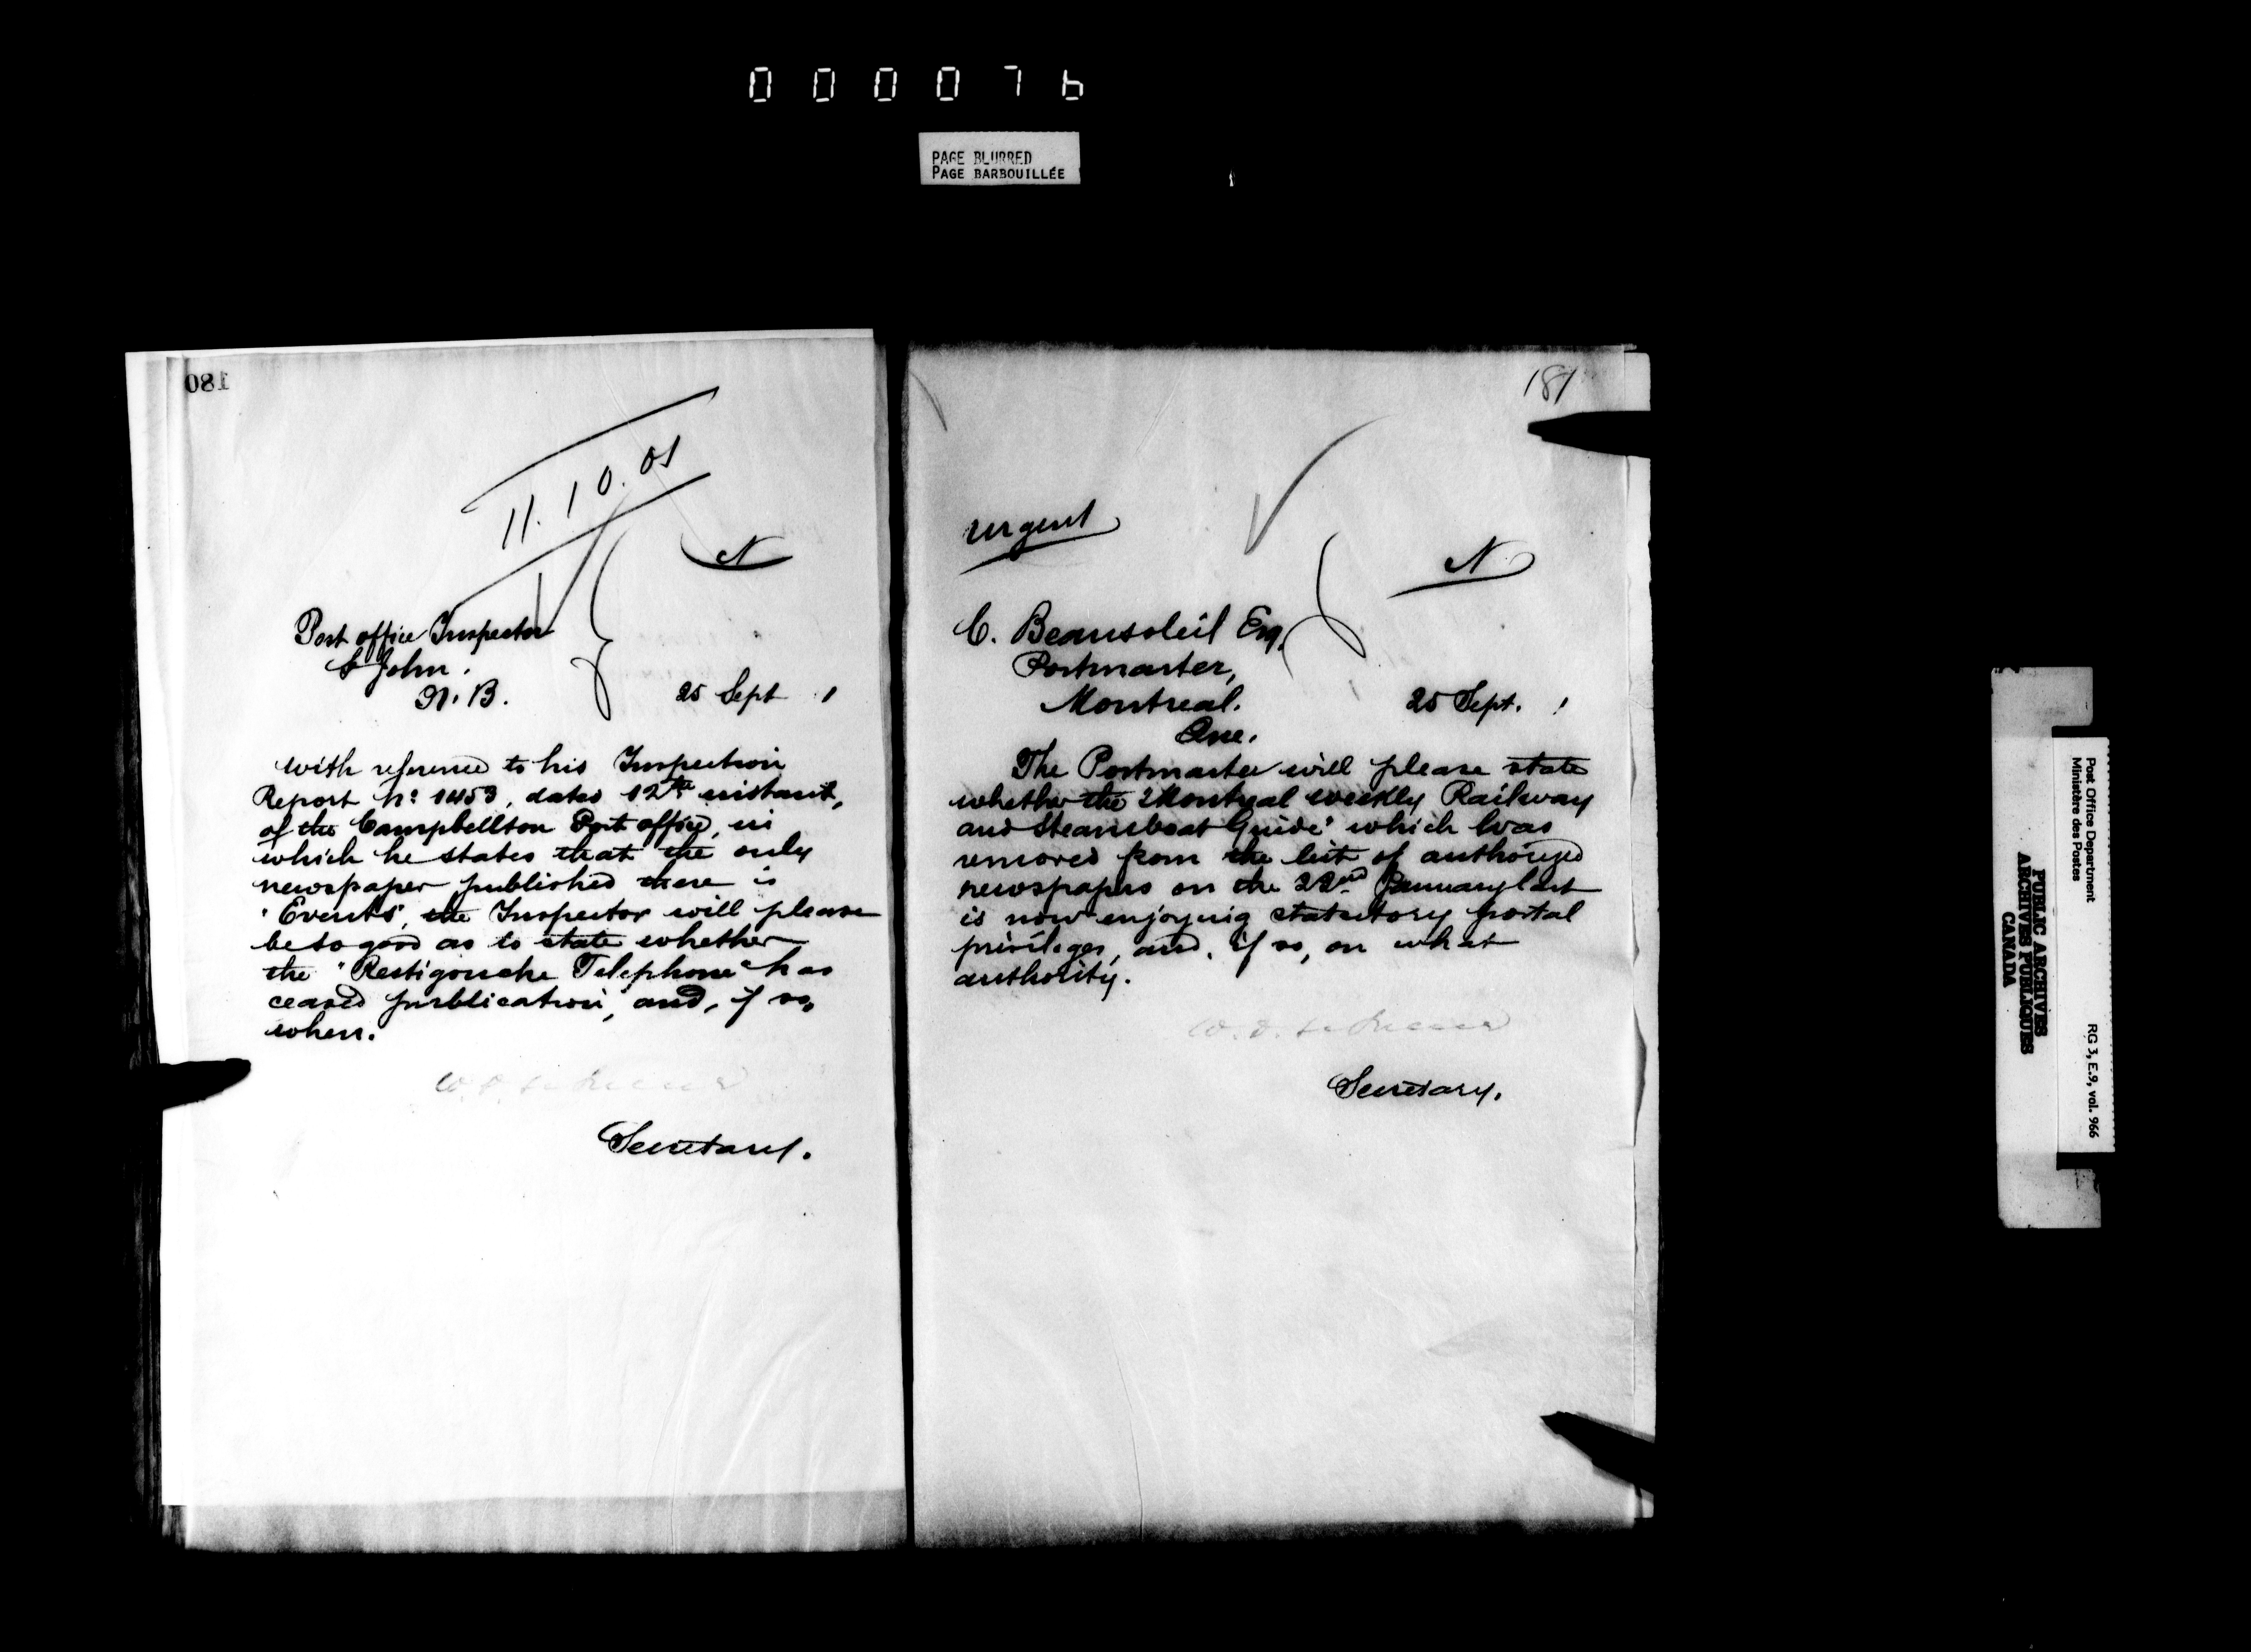 000076
PAGE BLURRED
PAGE BARBOUILLÉE
180
11.10.01
N
Post office Inspector
St John.
N.B.
25 Sept 1
With reference to his Inspection
Report No 1453, dated 12th instant,
of the Campbellton Post office, in
which he states that the only
newspaper published there is
"Events", the Inspector will please
be so good as to state whether
the "Restigouche Telephone" has
ceased publication, and, if so,
when.
Secretary.
181
urgent
N
C. Beausoleil Esq.
Postmaster,
Montreal.
Que.
25 Sept. 1
The Postmaster will please state
whether the "Montreal weekly Railway
and Steamboat Guide" which was
removed from the list of authorized
newspapers on the 22nd January last
is now enjoying statutory postal
privileges, and, if so, on what
authority.
Secretary.
Post Office Department
Ministère des Postes
RG 3, E.9, vol. 966
PUBLIC ARCHIVES
ARCHIVES PUBLIQUES
CANADA